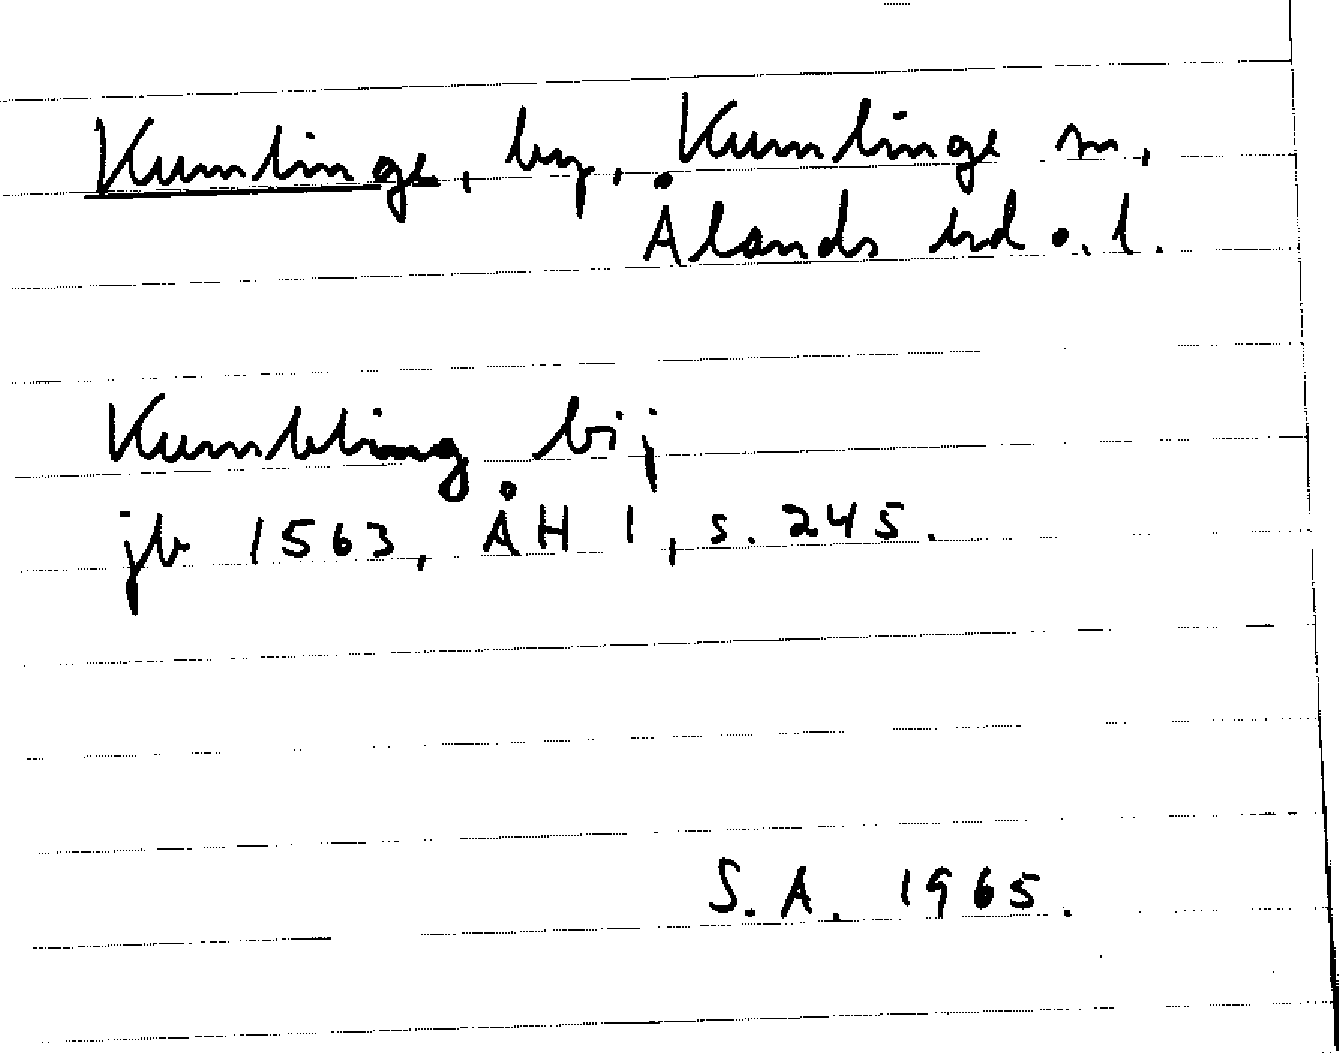 Kumlinge, by, Kumlinge sn,
Ålands hd o. l.
Kumbling bij
jb 1563, ÅH 1, s. 245.
S. A. 1965.